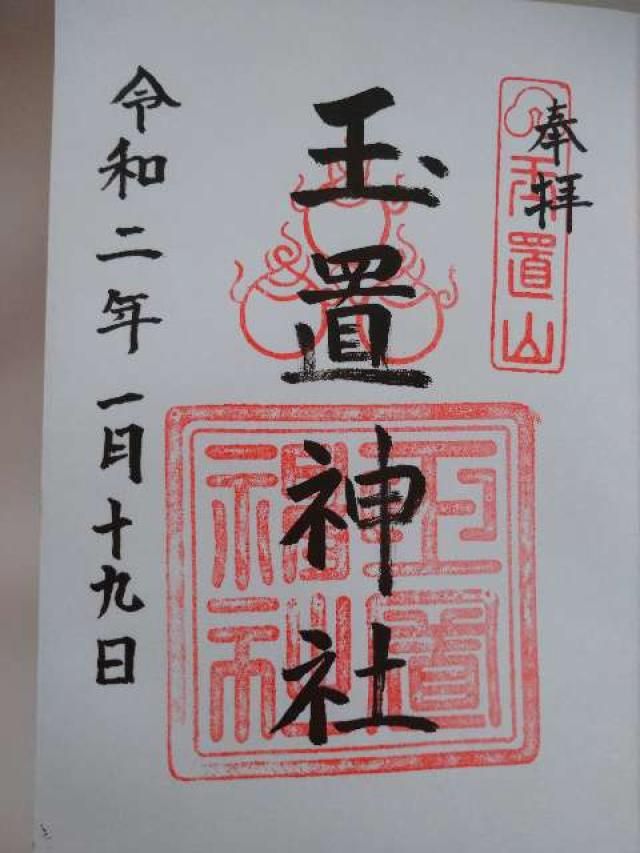 奉拝
玉置山
玉置神社
玉置神社
令和二年一月十九日